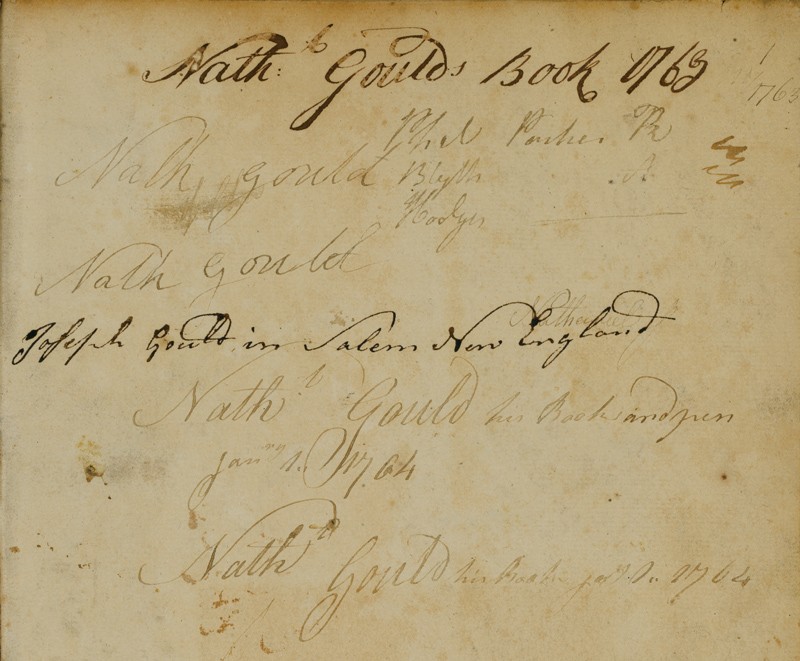 Nath:l Goulds Book 1763
1763
Phel Parker
Nath Gould Blyth
Hodges
Nath Gould
Joseph Gould in Salem New England
Nathl Gould his Book and pen
janry 1. 1764
Nathll Gould his Book jany 1. 1764